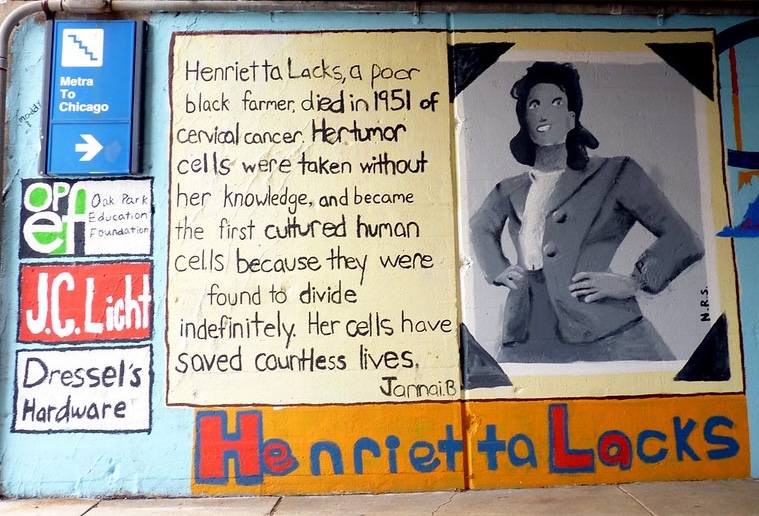 Metra
To
Chicago
opef
Oak Park
Education
Foundation
J.C. Licht
Dressel's
Hardware
Henrietta Lacks, a poor
black farmer, died in 1951 of
cervical cancer. Her tumor
cells were taken without
her knowledge, and became
the first cultured human
cells because they were
found to divide
indefinitely. Her cells have
saved countless lives.
Jannai.B
N.R.S.
Henrietta Lacks